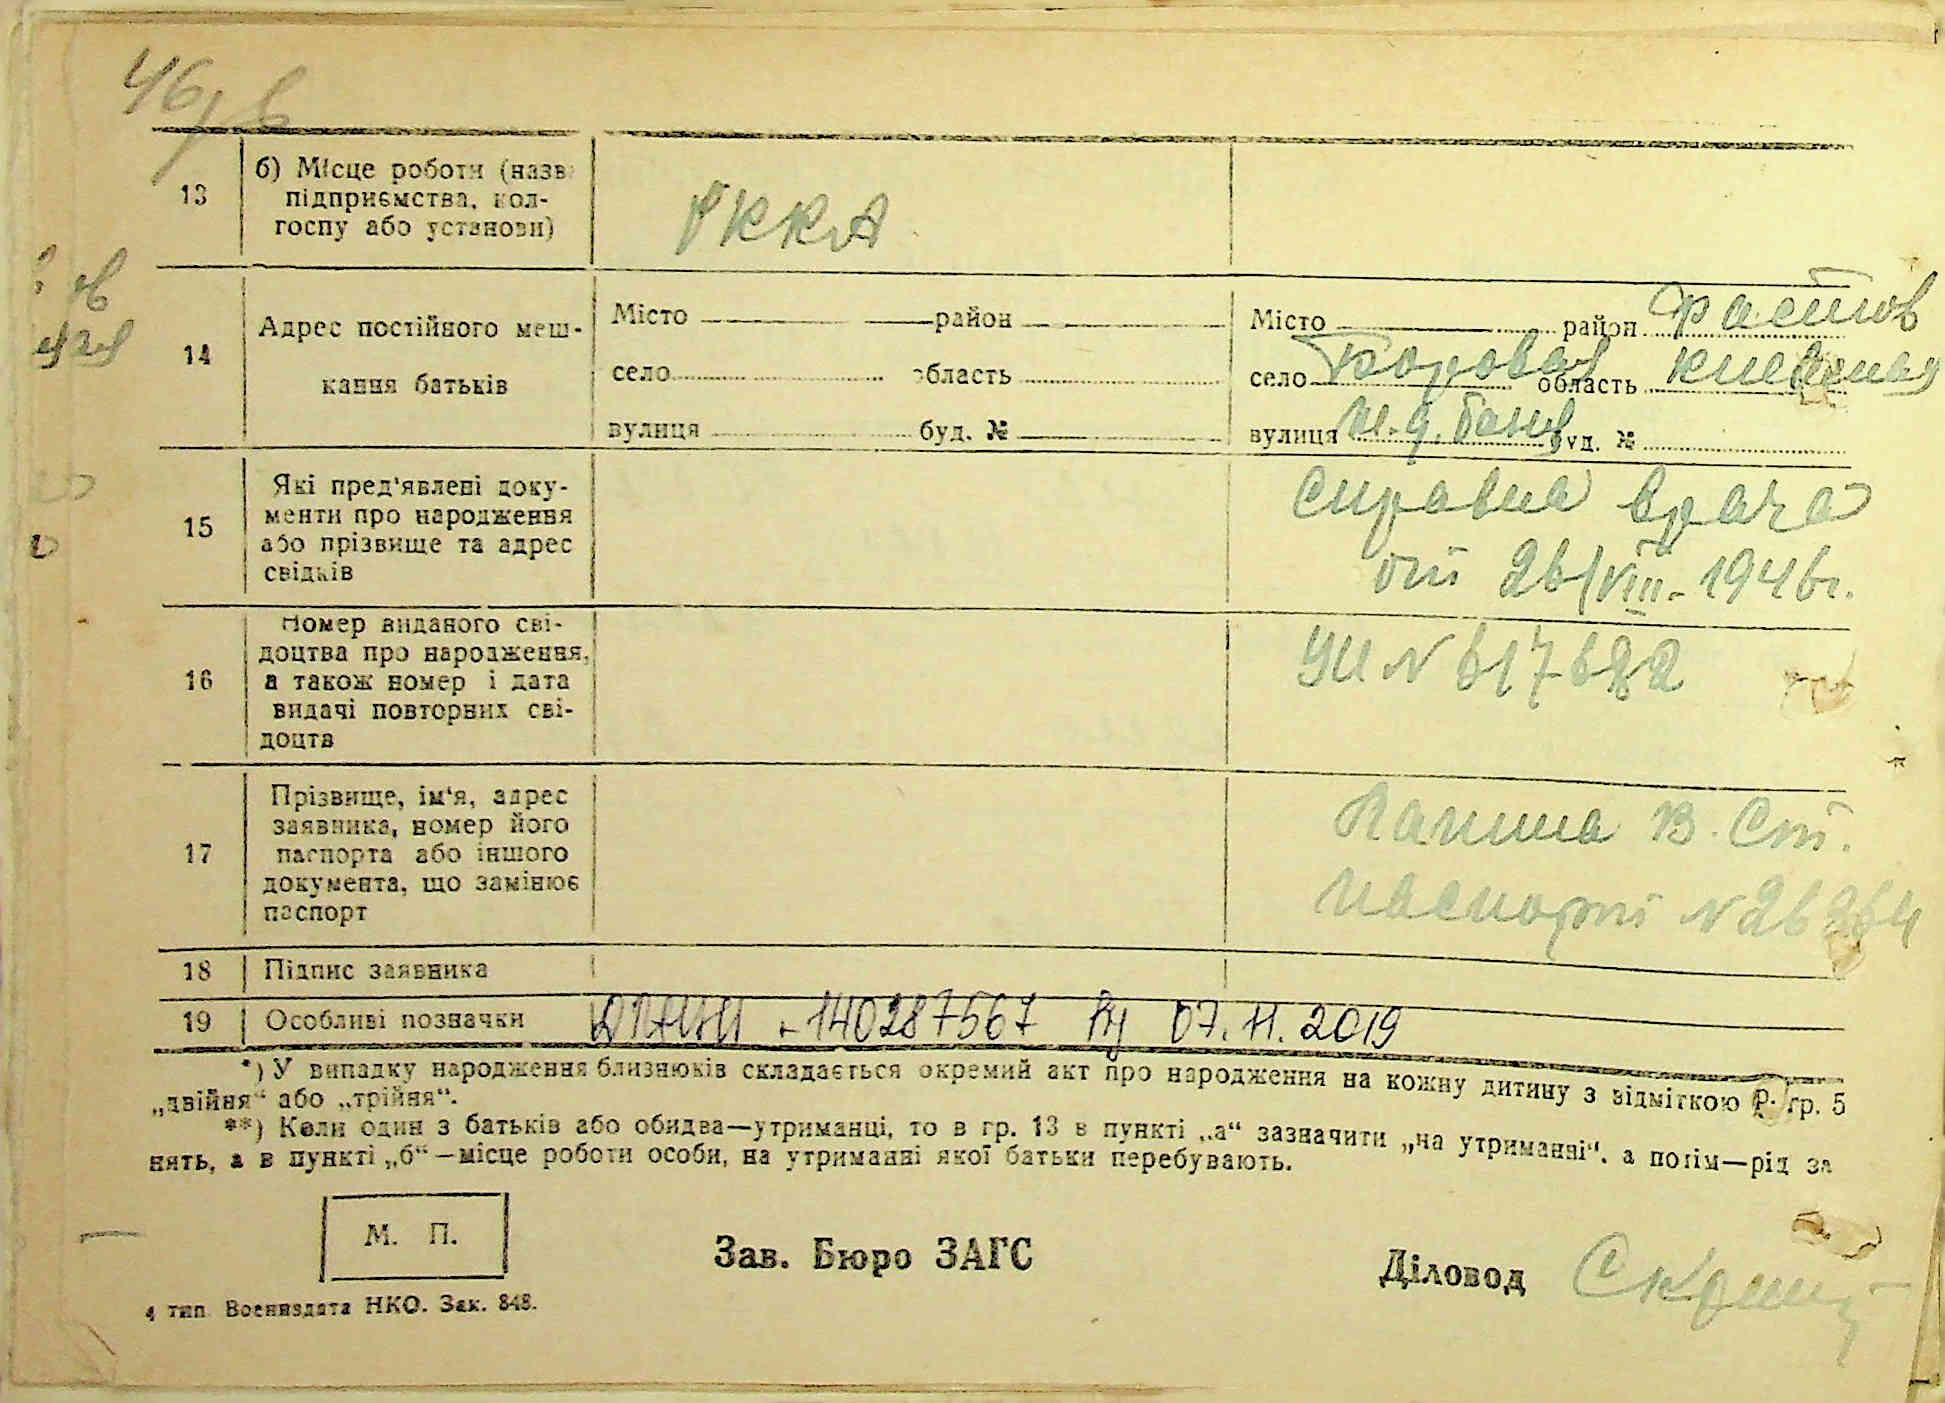 46/в
13
б) Місце роботи (назв
підприємства, кол-
госпу або установи)
РККА
14
Адрес постійного меш-
кання батьків
Місто район
село область
вулиця буд. №
Місто район Фастов
село Боровая область Киевская
вулиця ж.д. буд. №
15
Які пред'явлені доку-
менти про народження
або прізвище та адрес
свідків
Справка врача
от 26/VIII-1946г.
16
Номер виданого сві-
доцтва про народження,
а також номер і дата
видачі повторних сві-
доцтв
№ 617682
17
Прізвище, ім'я, адрес
заявника, номер його
паспорта або іншого
документа, що замінює
паспорт
В. Ст.
паспорт № 26264
18
Підпис заявника
19
Особливі позначки
140287567 07.11.2019
*) У випадку народження близнюків складається окремий акт про народження на кожну дитину з відміткою в гр. 5
„двійня“ або „трійня“.
**) Коли один з батьків або обидва—утриманці, то в гр. 13 в пункті „а“ зазначити „на утриманні“, а потім—рід за
нять, а в пункті „б“—місце роботи особи, на утриманні якої батьки перебувають.
М. П.
Зав. Бюро ЗАГС
Діловод
4 тип. Воениздата НКО. Зак. 848.